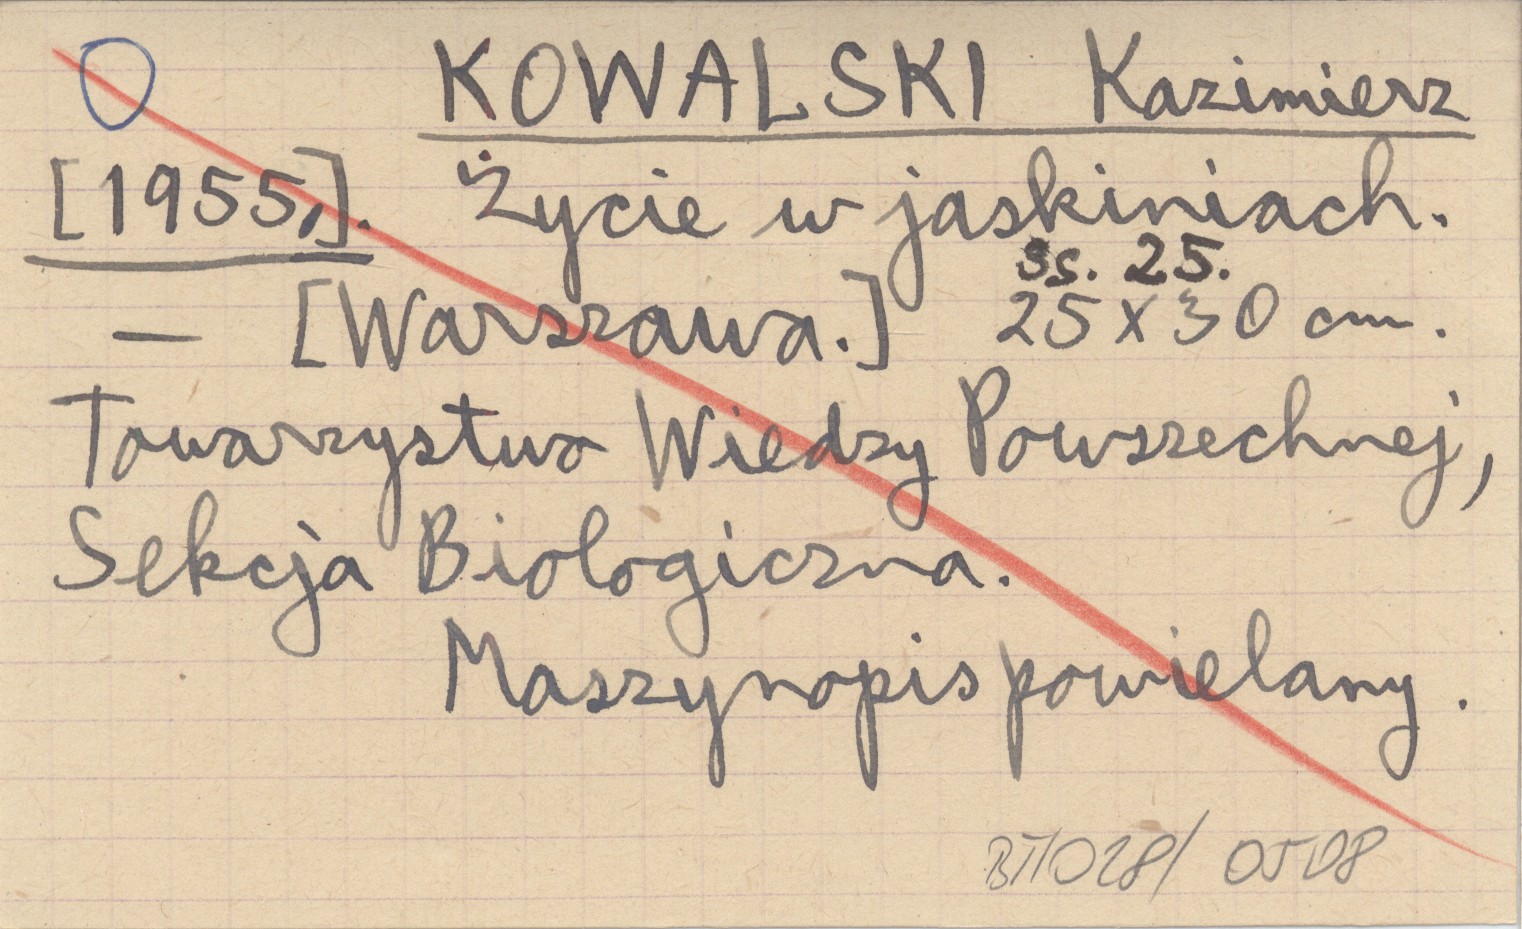 KOWALSKI Kazimierz
[1955.]. Życie w jaskiniach.
ss. 25.
— [Warszawa.] 25 x 30 cm.
Towarzystwo Wiedzy Powszechnej,
Sekcja Biologiczna.
Maszynopis powielany.